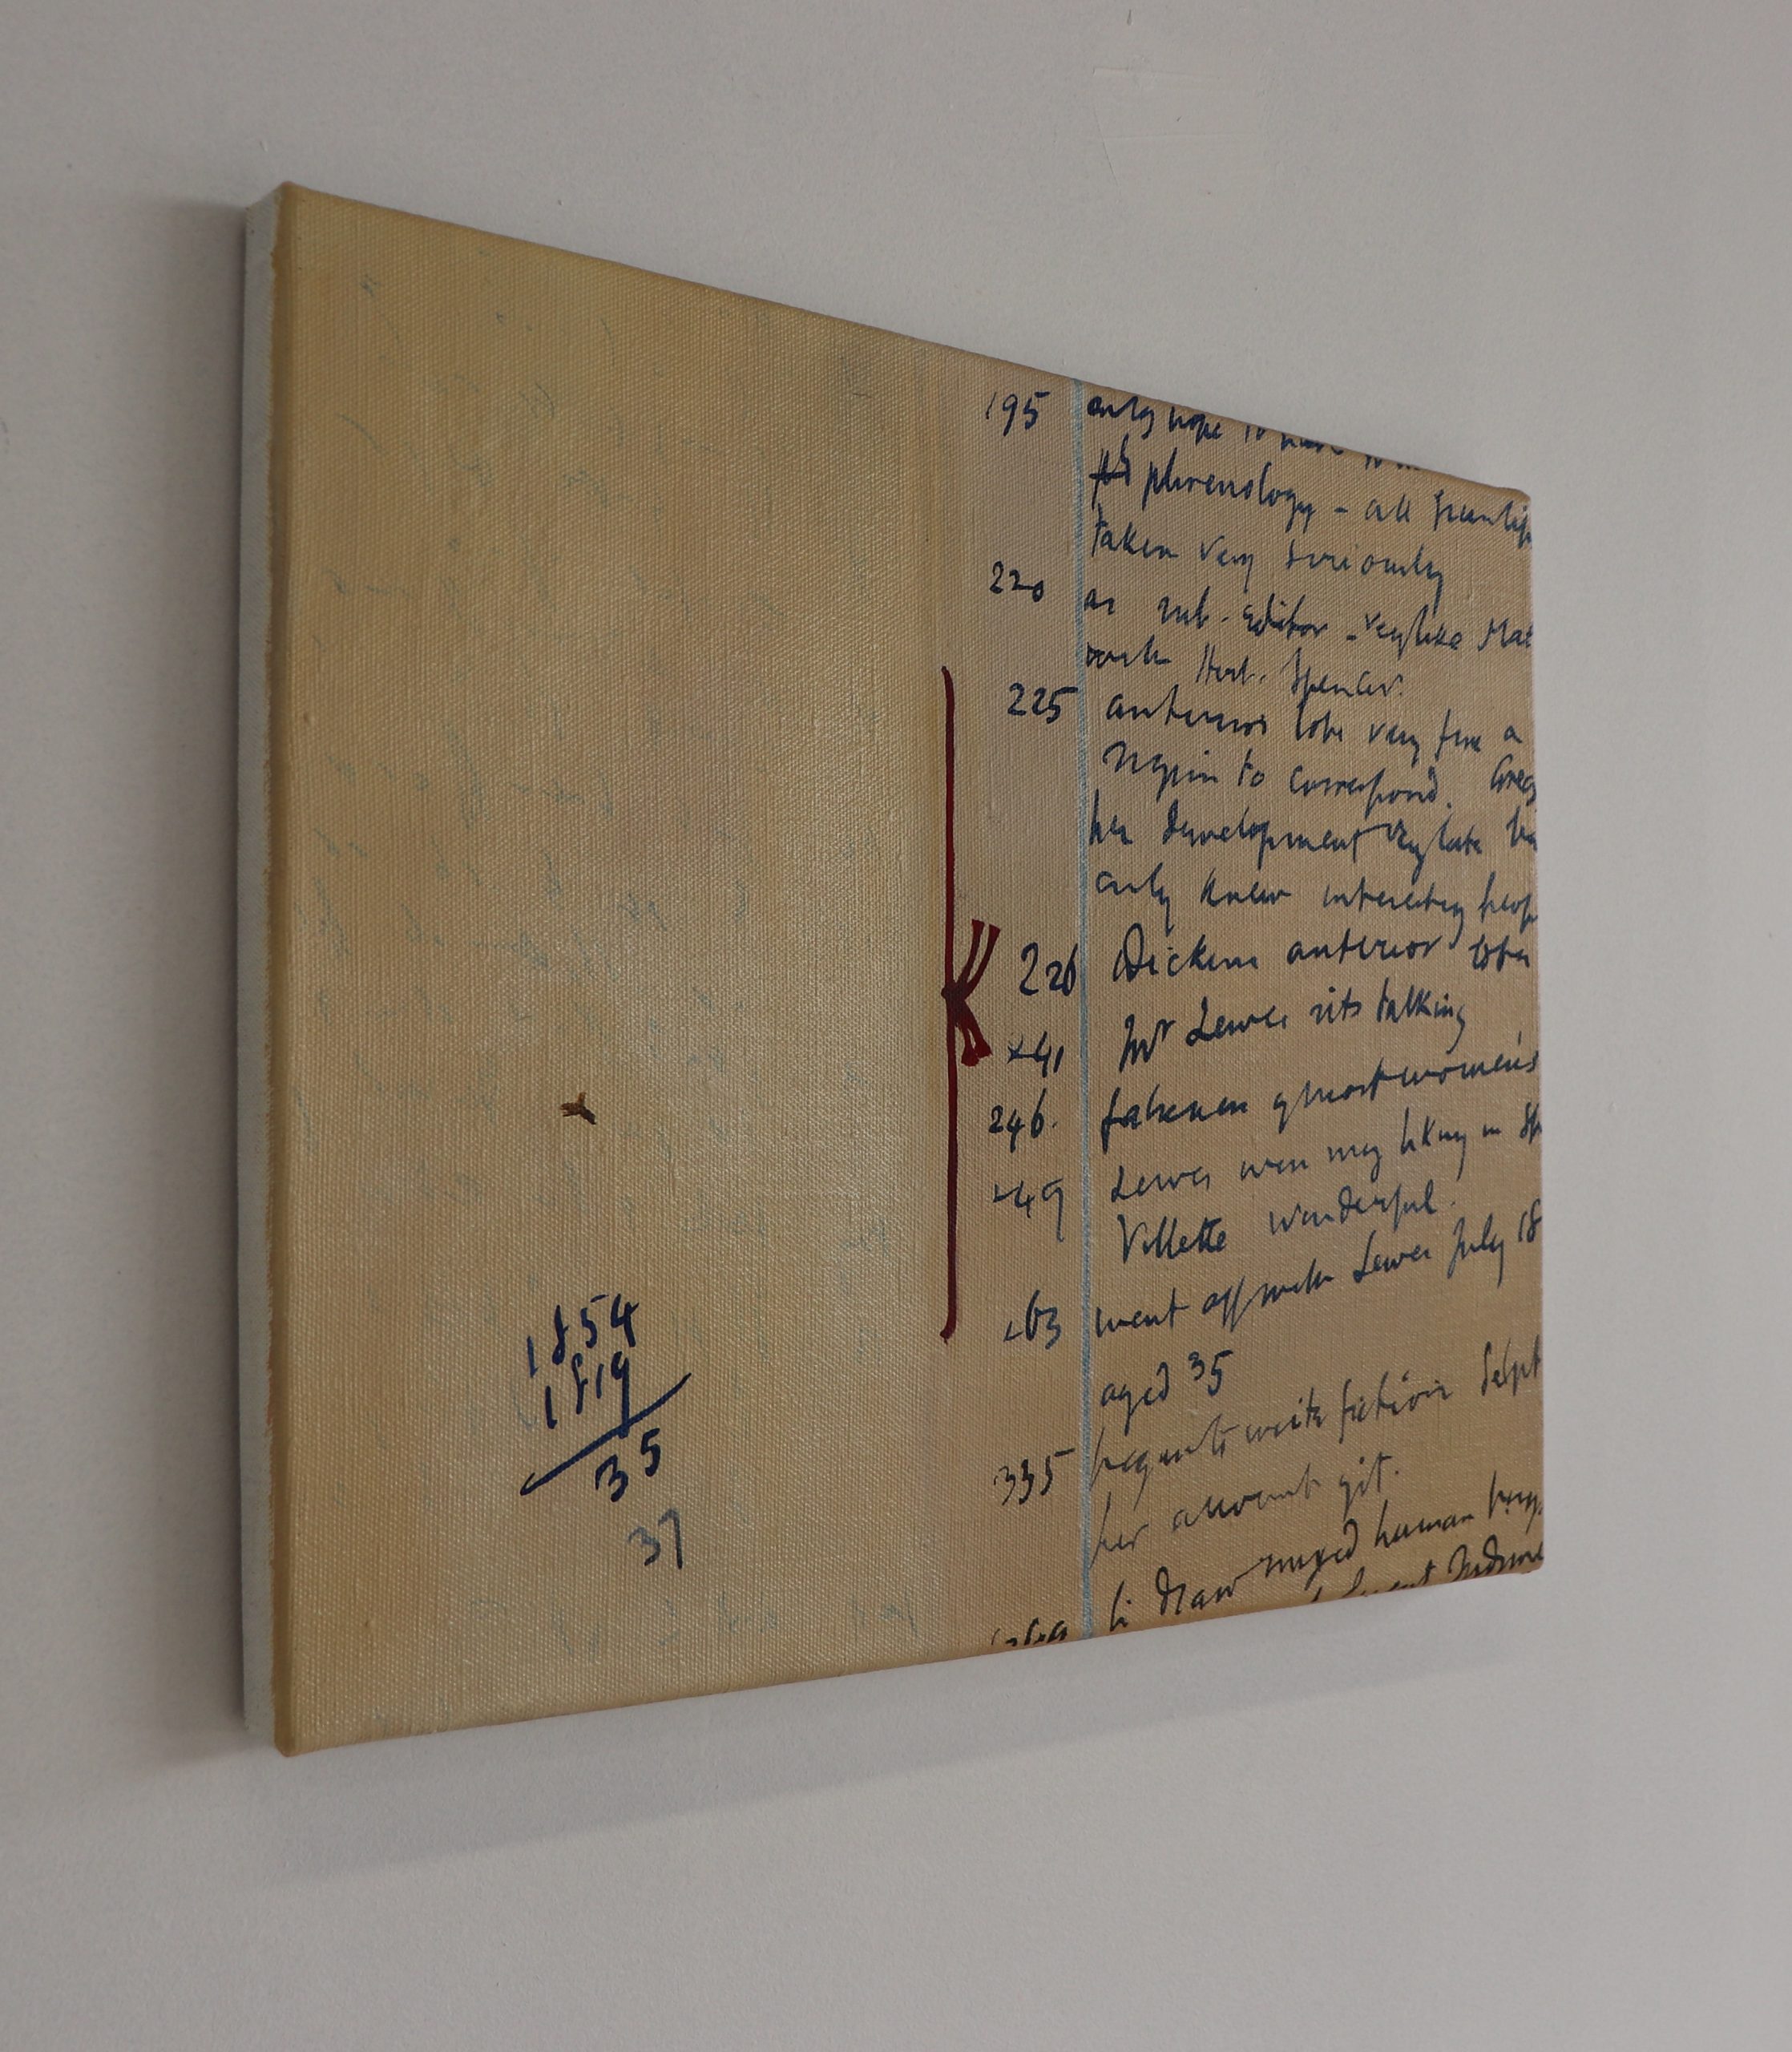 195 only hope to
phrenology - all
taken very seriously
220 as sub-editor - very like
with Herb. Spencer.
225 anterior lobe very fine a
region to correspond.
her development very late
only knew interesting
226 Dickens anterior lobe
241 Mr Lewes sits talking
246. falseness of most women's
249 Lewes won my liking in
Villette wonderful.
263 went off with Lewes July 18
aged 35
335 begins to write fiction Sept
her account of it.
to draw mixed human
1854
1819
35
37